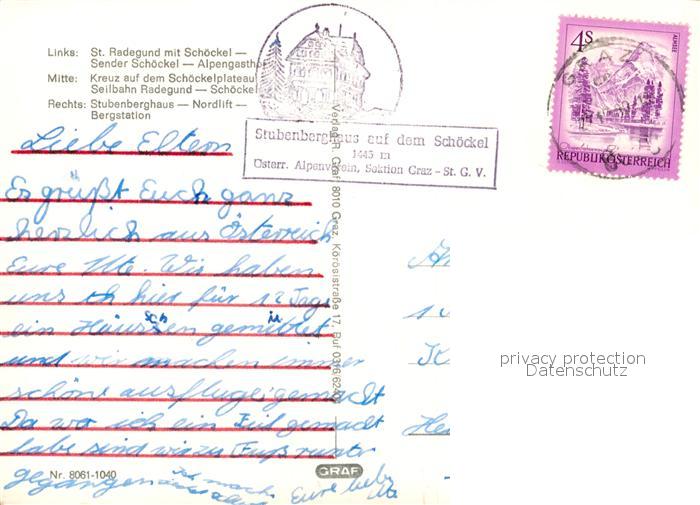 Links: St. Radegund mit Schöckel —
Sender Schöckel — Alpengasthof
Mitte: Kreuz auf dem Schöckelplateau
Seilbahn Radegund — Schöckel
Rechts: Stubenberghaus — Nordlift —
Bergstation
Stubenberghaus auf dem Schöckel
1445 m
Österr. Alpenverein, Sektion Graz - St. G. V.
4S
ALMSEE
REPUBLIK ÖSTERREICH
GRAZ
Liebe Eltern
Es grüßt Euch ganz
herzlich aus Österreich
Eure Ute. Wir haben
uns hier für 12 Tage
ein Häuschen gemietet
und wir machen immer
schöne ausflüge gemacht
Da wo ich ein Teil gemacht
habe sind wir zu Fuß runter
gegangen
Eure liebe
Ute
Verlag H. Graf, 8010 Graz, Körösistraße 17, Ruf 0316/624
Nr. 8061-1040
GRAF
privacy protection
Datenschutz